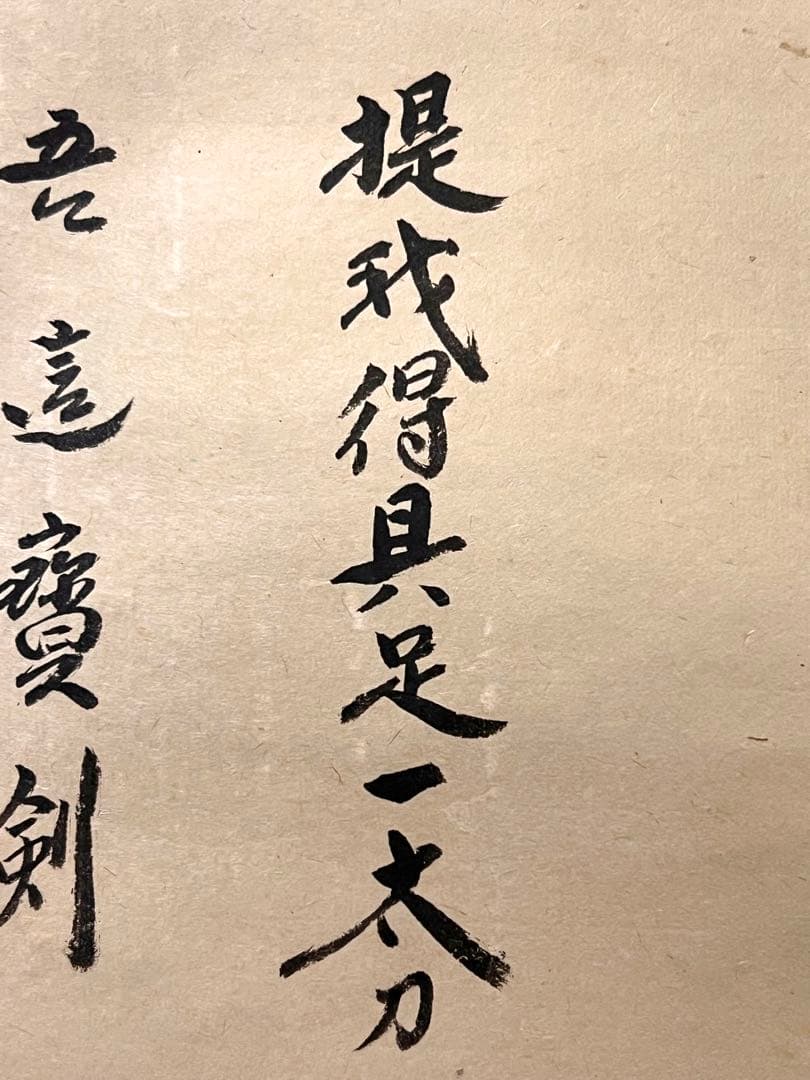 提我得具足一太刀
吾這寶剣